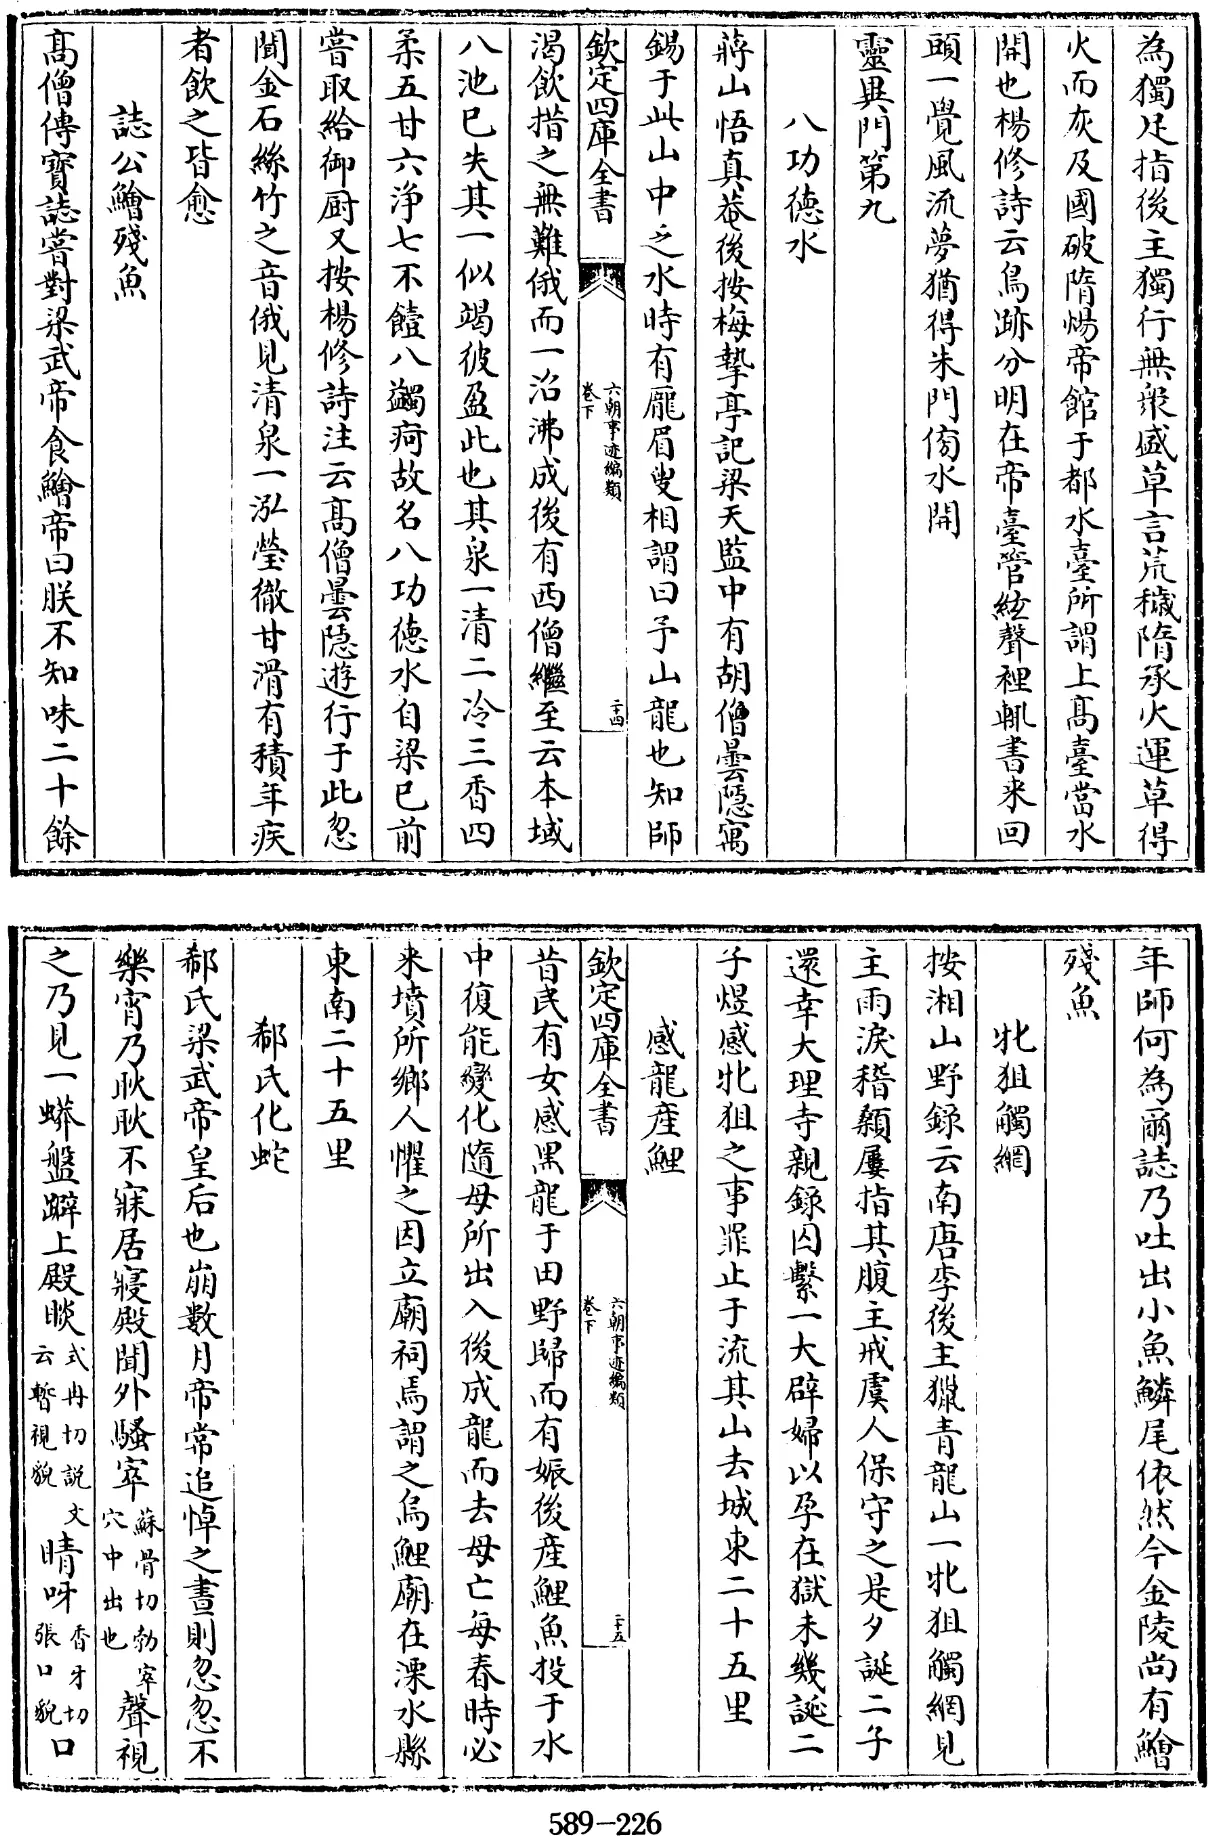 為獨足指後主獨行無衆盛草言荒穢隋承火運草得
火而灰及國破隋煬帝館于都水臺所謂上高臺當水
開也楊修詩云鳥跡分明在帝臺管絃聲裡輒書来回
頭一覺風流夢猶得朱門傍水開
靈異門第九
八功德水
蔣山悟真菴後按梅摯亭記梁天監中有胡僧曇隱寓
錫于此山中乏水時有龎眉叟相謂曰予山龍也知師
欽定四庫全書
六朝事迹編類
卷下
二十四
渴飲措之無難俄而一沼沸成後有西僧繼至云本域
八池已失其一似竭彼盈此也其泉一清二冷三香四
柔五甘六淨七不饐八蠲疴故名八功德水自梁已前
嘗取給御厨又按楊修詩注云高僧曇隱遊行于此忽
聞金石絲竹之音俄見清泉一泓瑩徹甘滑有積年疾
者飲之皆愈
誌公鱠殘魚
高僧傳寶誌嘗對梁武帝食鱠帝曰朕不知味二十餘
年師何為爾誌乃吐出小魚鱗尾依然今金陵尚有鱠
殘魚
牝狙觸網
按湘山野錄云南唐李後主獵青龍山一牝狙觸網見
主雨淚稽顙屢指其腹主戒虞人保守之是夕誕二子
還幸大理寺親錄囚繫一大辟婦以孕在獄未幾誕二
子煜感牝狙之事罪止于流其山去城東二十五里
感龍産鯉
欽定四庫全書
六朝事迹編類
卷下
二十五
昔民有女感黑龍于田野歸而有娠後産鯉魚投于水
中復能變化隨母所出入後成龍而去母亡每春時必
来墳所鄉人懼之因立廟祠焉謂之烏鯉廟在溧水縣
東南二十五里
郗氏化蛇
郗氏梁武帝皇后也崩數月帝常追悼之晝則忽忽不
樂宵乃耿耿不寐居寢殿聞外騷窣蘇骨切勃窣穴中出也聲視
之乃見一蟒盤躃上殿睒式冉切説文云暫視貌睛呀香牙切張口貌口
589-226